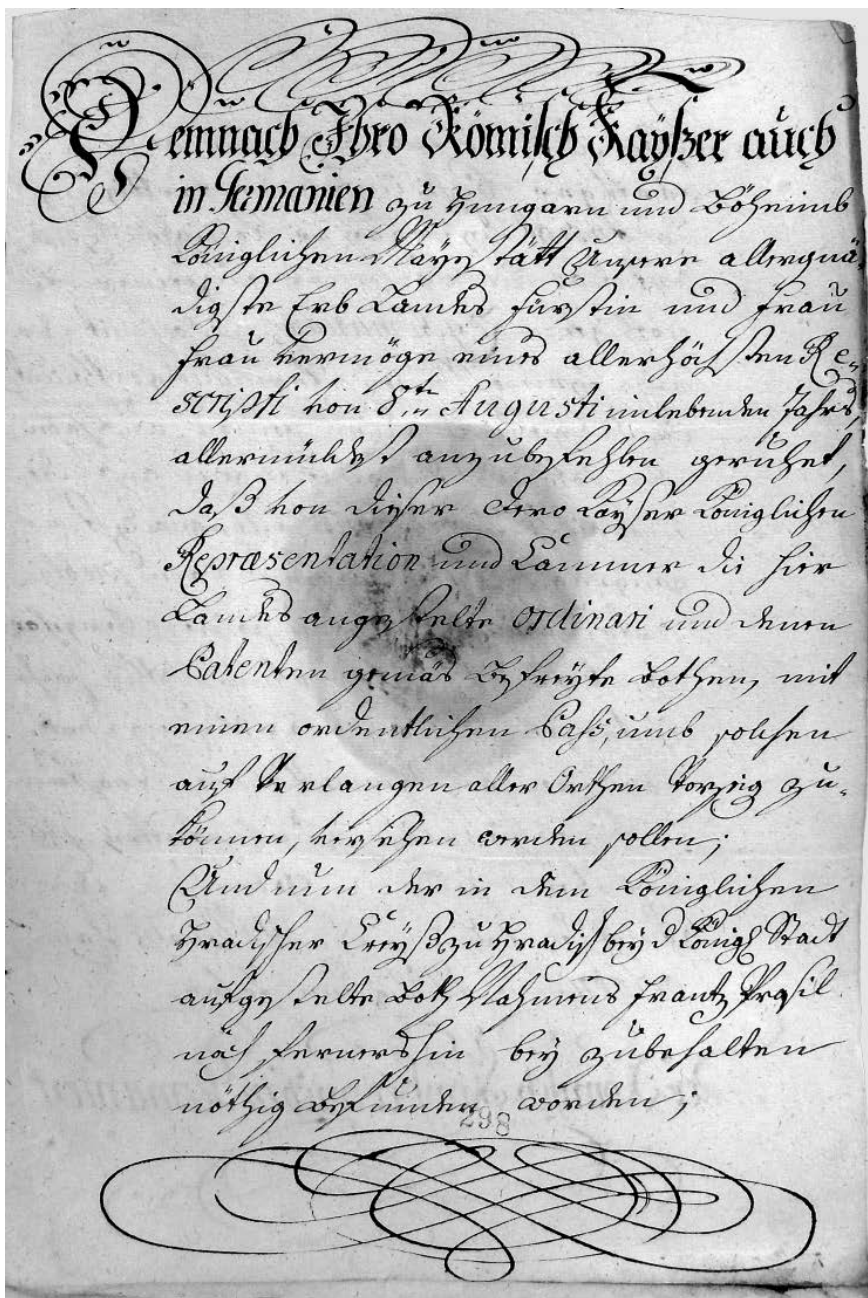 Demnach Ihro Römisch Kayßer auch
in Germanien zu Hungarn und Böheimb
Königlichen Mayestätt Unsere allergnä
digste Erb Landes Fürstin und Frau
Frau vermöge eines allerhöchsten Re=
scripti von 8ten Augusti innlebenden Jahrs,
allermüldest anzubefehlen geruhet,
daß von dieser dero Kayser Königlichen
Repræsentation und Cammer die hier
Landes angestelte ordinari und denen
Patenten gemäs befreyte Bothen, mit
einen ordentlichen Pass, umb solchen
auf Verlangen aller Orthen Vorzeig zu=
können, versehen werden sollen;
Und nun der in dem Königlichen
Hradischer Creyß zu Hradisch bey d Königl Stadt
aufgestelte Both Nahmens Frantz Prasil
noch fernershin bey zubehalten
nöthig befunden worden;
298